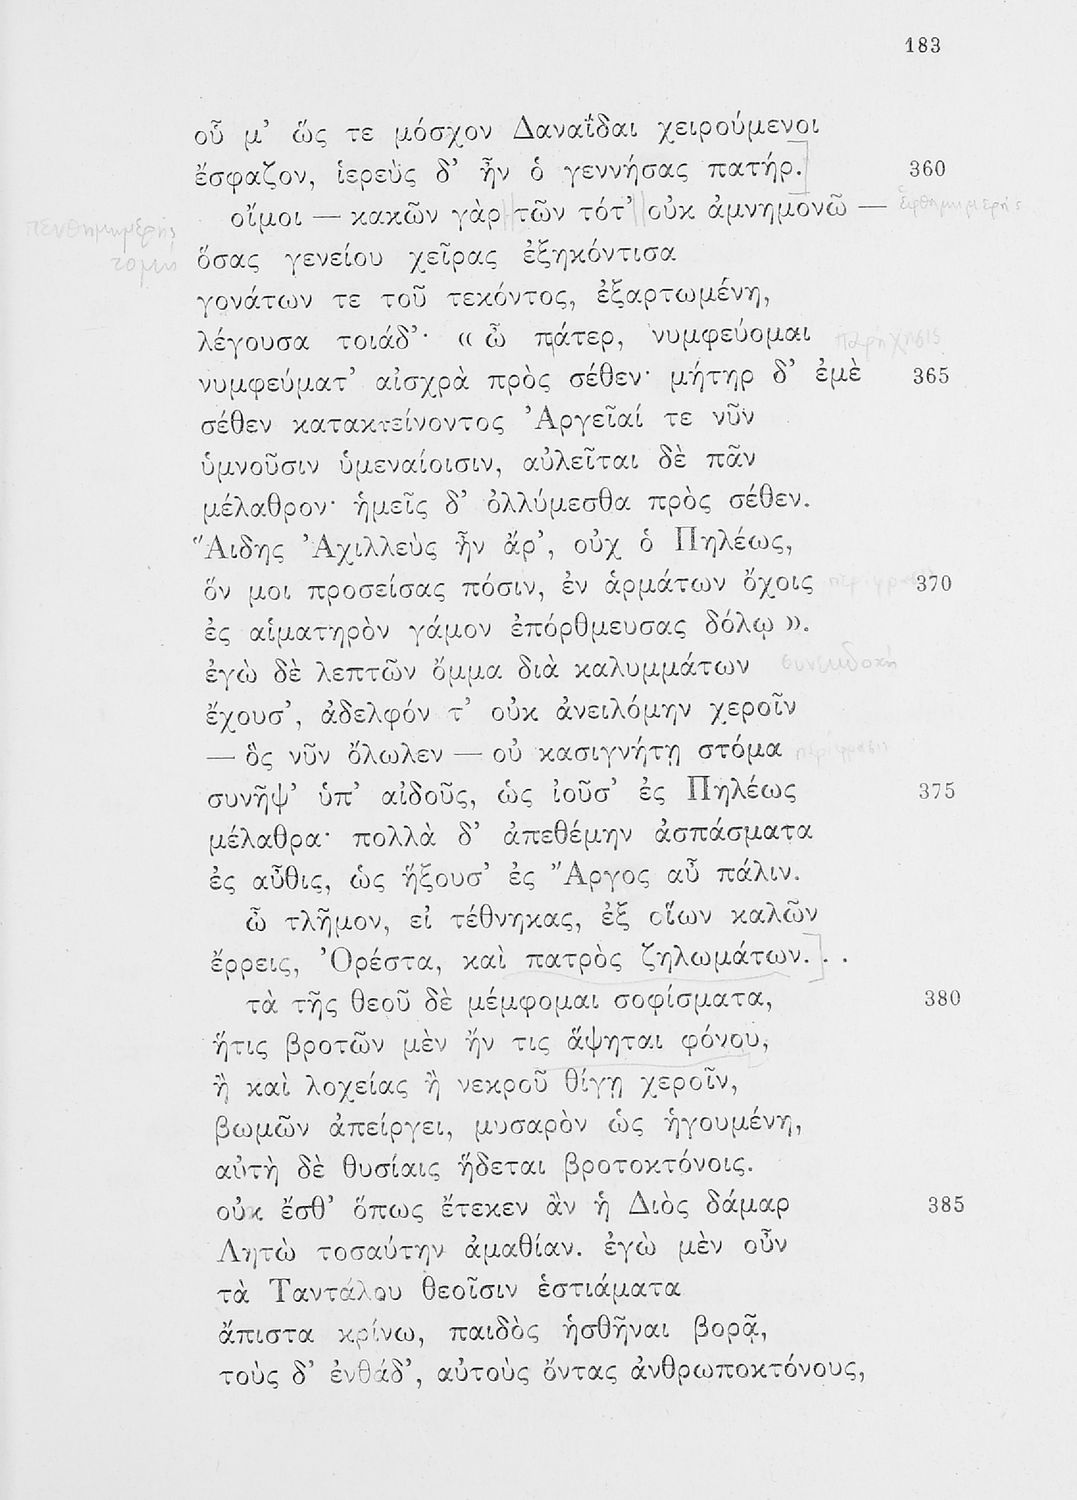 183
οὗ μ' ὥς τε μόσχον Δαναΐδαι χειρούμενοι
ἔσφαζον, ἱερεὺς δ' ἦν ὁ γεννήσας πατήρ. 360
οἴμοι — κακῶν γὰρ τῶν τότ' οὐκ ἀμνημονῶ — ἑφθημιμερής
πενθημιμερής
τομή
ὅσας γενείου χεῖρας ἐξηκόντισα
γονάτων τε τοῦ τεκόντος, ἐξαρτωμένη,
λέγουσα τοιάδ'· « ὦ πάτερ, νυμφεύομαι παρήχησις
νυμφεύματ' αἰσχρὰ πρὸς σέθεν· μήτηρ δ' ἐμὲ 365
σέθεν κατακτείνοντος Ἀργεῖαί τε νῦν
ὑμνοῦσιν ὑμεναίοισιν, αὐλεῖται δὲ πᾶν
μέλαθρον· ἡμεῖς δ' ὀλλύμεσθα πρὸς σέθεν.
Ἅιδης Ἀχιλλεὺς ἦν ἄρ', οὐχ ὁ Πηλέως,
ὅν μοι προσείσας πόσιν, ἐν ἁρμάτων ὄχοις 370
ἐς αἱματηρὸν γάμον ἐπόρθμευσας δόλῳ ».
ἐγὼ δὲ λεπτῶν ὄμμα διὰ καλυμμάτων συνεκδοχή
ἔχουσ', ἀδελφόν τ' οὐκ ἀνειλόμην χεροῖν
— ὃς νῦν ὄλωλεν — οὐ κασιγνήτῃ στόμα περίφρασις
συνῆψ' ὑπ' αἰδοῦς, ὡς ἰοῦσ' ἐς Πηλέως 375
μέλαθρα· πολλὰ δ' ἀπεθέμην ἀσπάσματα
ἐς αὖθις, ὡς ἥξουσ' ἐς Ἄργος αὖ πάλιν.
ὦ τλῆμον, εἰ τέθνηκας, ἐξ οἵων καλῶν
ἔρρεις, Ὀρέστα, καὶ πατρὸς ζηλωμάτων. . .
τὰ τῆς θεοῦ δὲ μέμφομαι σοφίσματα, 380
ἥτις βροτῶν μὲν ἤν τις ἅψηται φόνου,
ἢ καὶ λοχείας ἢ νεκροῦ θίγῃ χεροῖν,
βωμῶν ἀπείργει, μυσαρὸν ὡς ἡγουμένη,
αὐτὴ δὲ θυσίαις ἥδεται βροτοκτόνοις.
οὐκ ἔσθ' ὅπως ἔτεκεν ἂν ἡ Διὸς δάμαρ 385
Λητὼ τοσαύτην ἀμαθίαν. ἐγὼ μὲν οὖν
τὰ Ταντάλου θεοῖσιν ἑστιάματα
ἄπιστα κρίνω, παιδὸς ἡσθῆναι βορᾷ,
τοὺς δ' ἐνθάδ', αὐτοὺς ὄντας ἀνθρωποκτόνους,